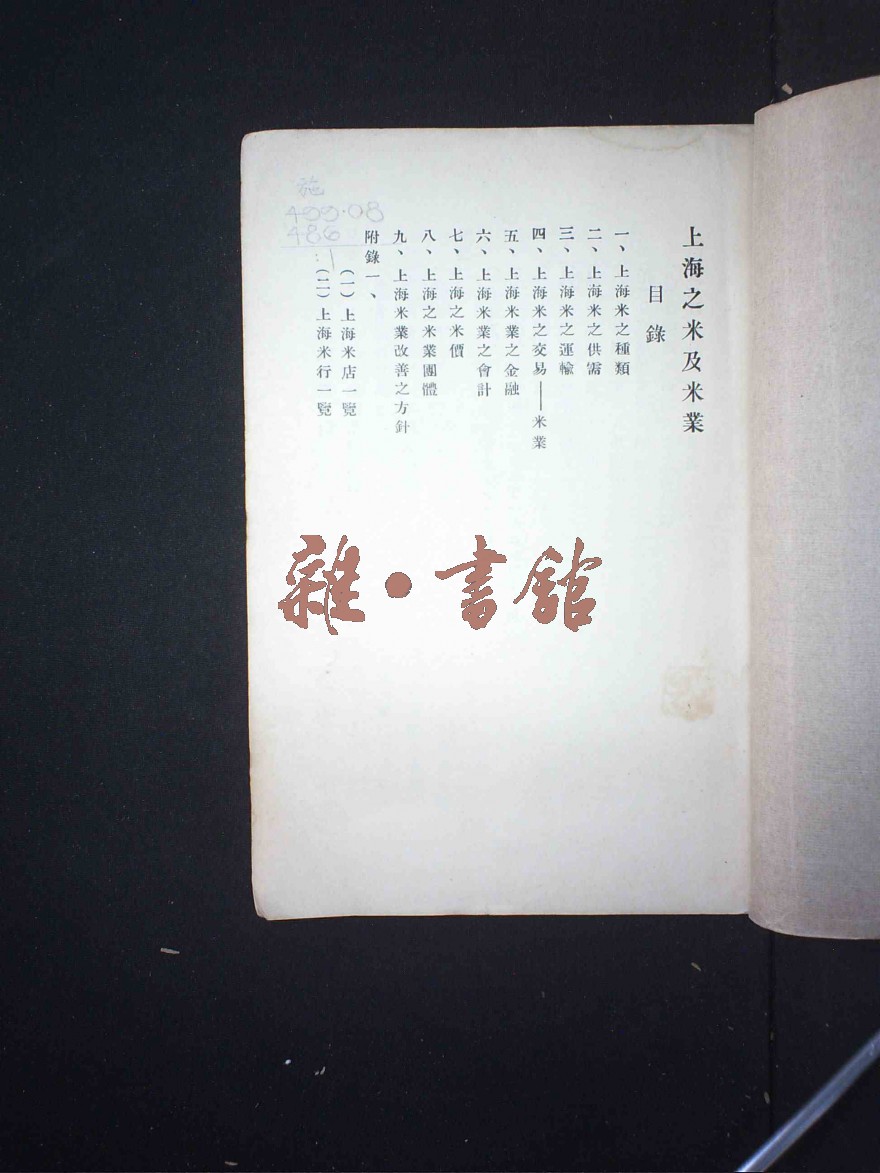 上海之米及米業
目錄
一、上海米之種類
二、上海米之供需
三、上海米之運輸
四、上海米之交易——米業
五、上海米業之金融
六、上海米業之會計
七、上海之米價
八、上海之米業團體
九、上海米業改善之方針
附錄一、
(一)上海米店一覽
(二)上海米行一覽
施
499·08
486
:1
雜·書館